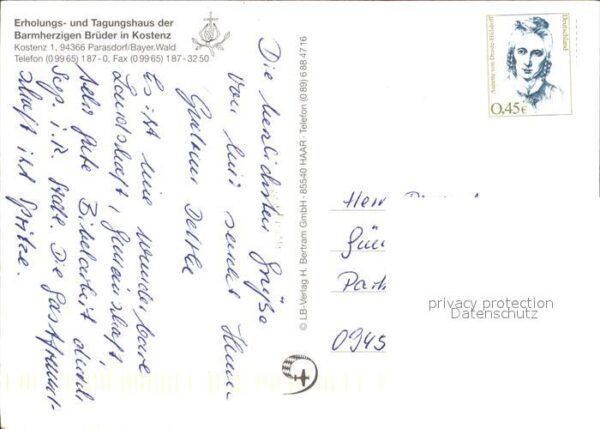 Erholungs- und Tagungshaus der
Barmherzigen Brüder in Kostenz
Kostenz 1, 94366 Parasdorf/Bayer.Wald
Telefon (09965) 187-0, Fax (09965) 187-3250
Die herzlichsten Grüße
von hier sendet Ihnen
Es ist eine wunderbare
Landschaft, Gemeinschaft,
sehr gute Bibelarbeit durch
Sup. i. R. Die Gastfreund-
schaft ist Spitze.
© LB-Verlag H. Bertram GmbH · 85540 HAAR · Telefon (089) 6884716
Annette von Droste-Hülshoff
Deutschland
0,45€
Herrn
Gün
0945
privacy protection
Datenschutz